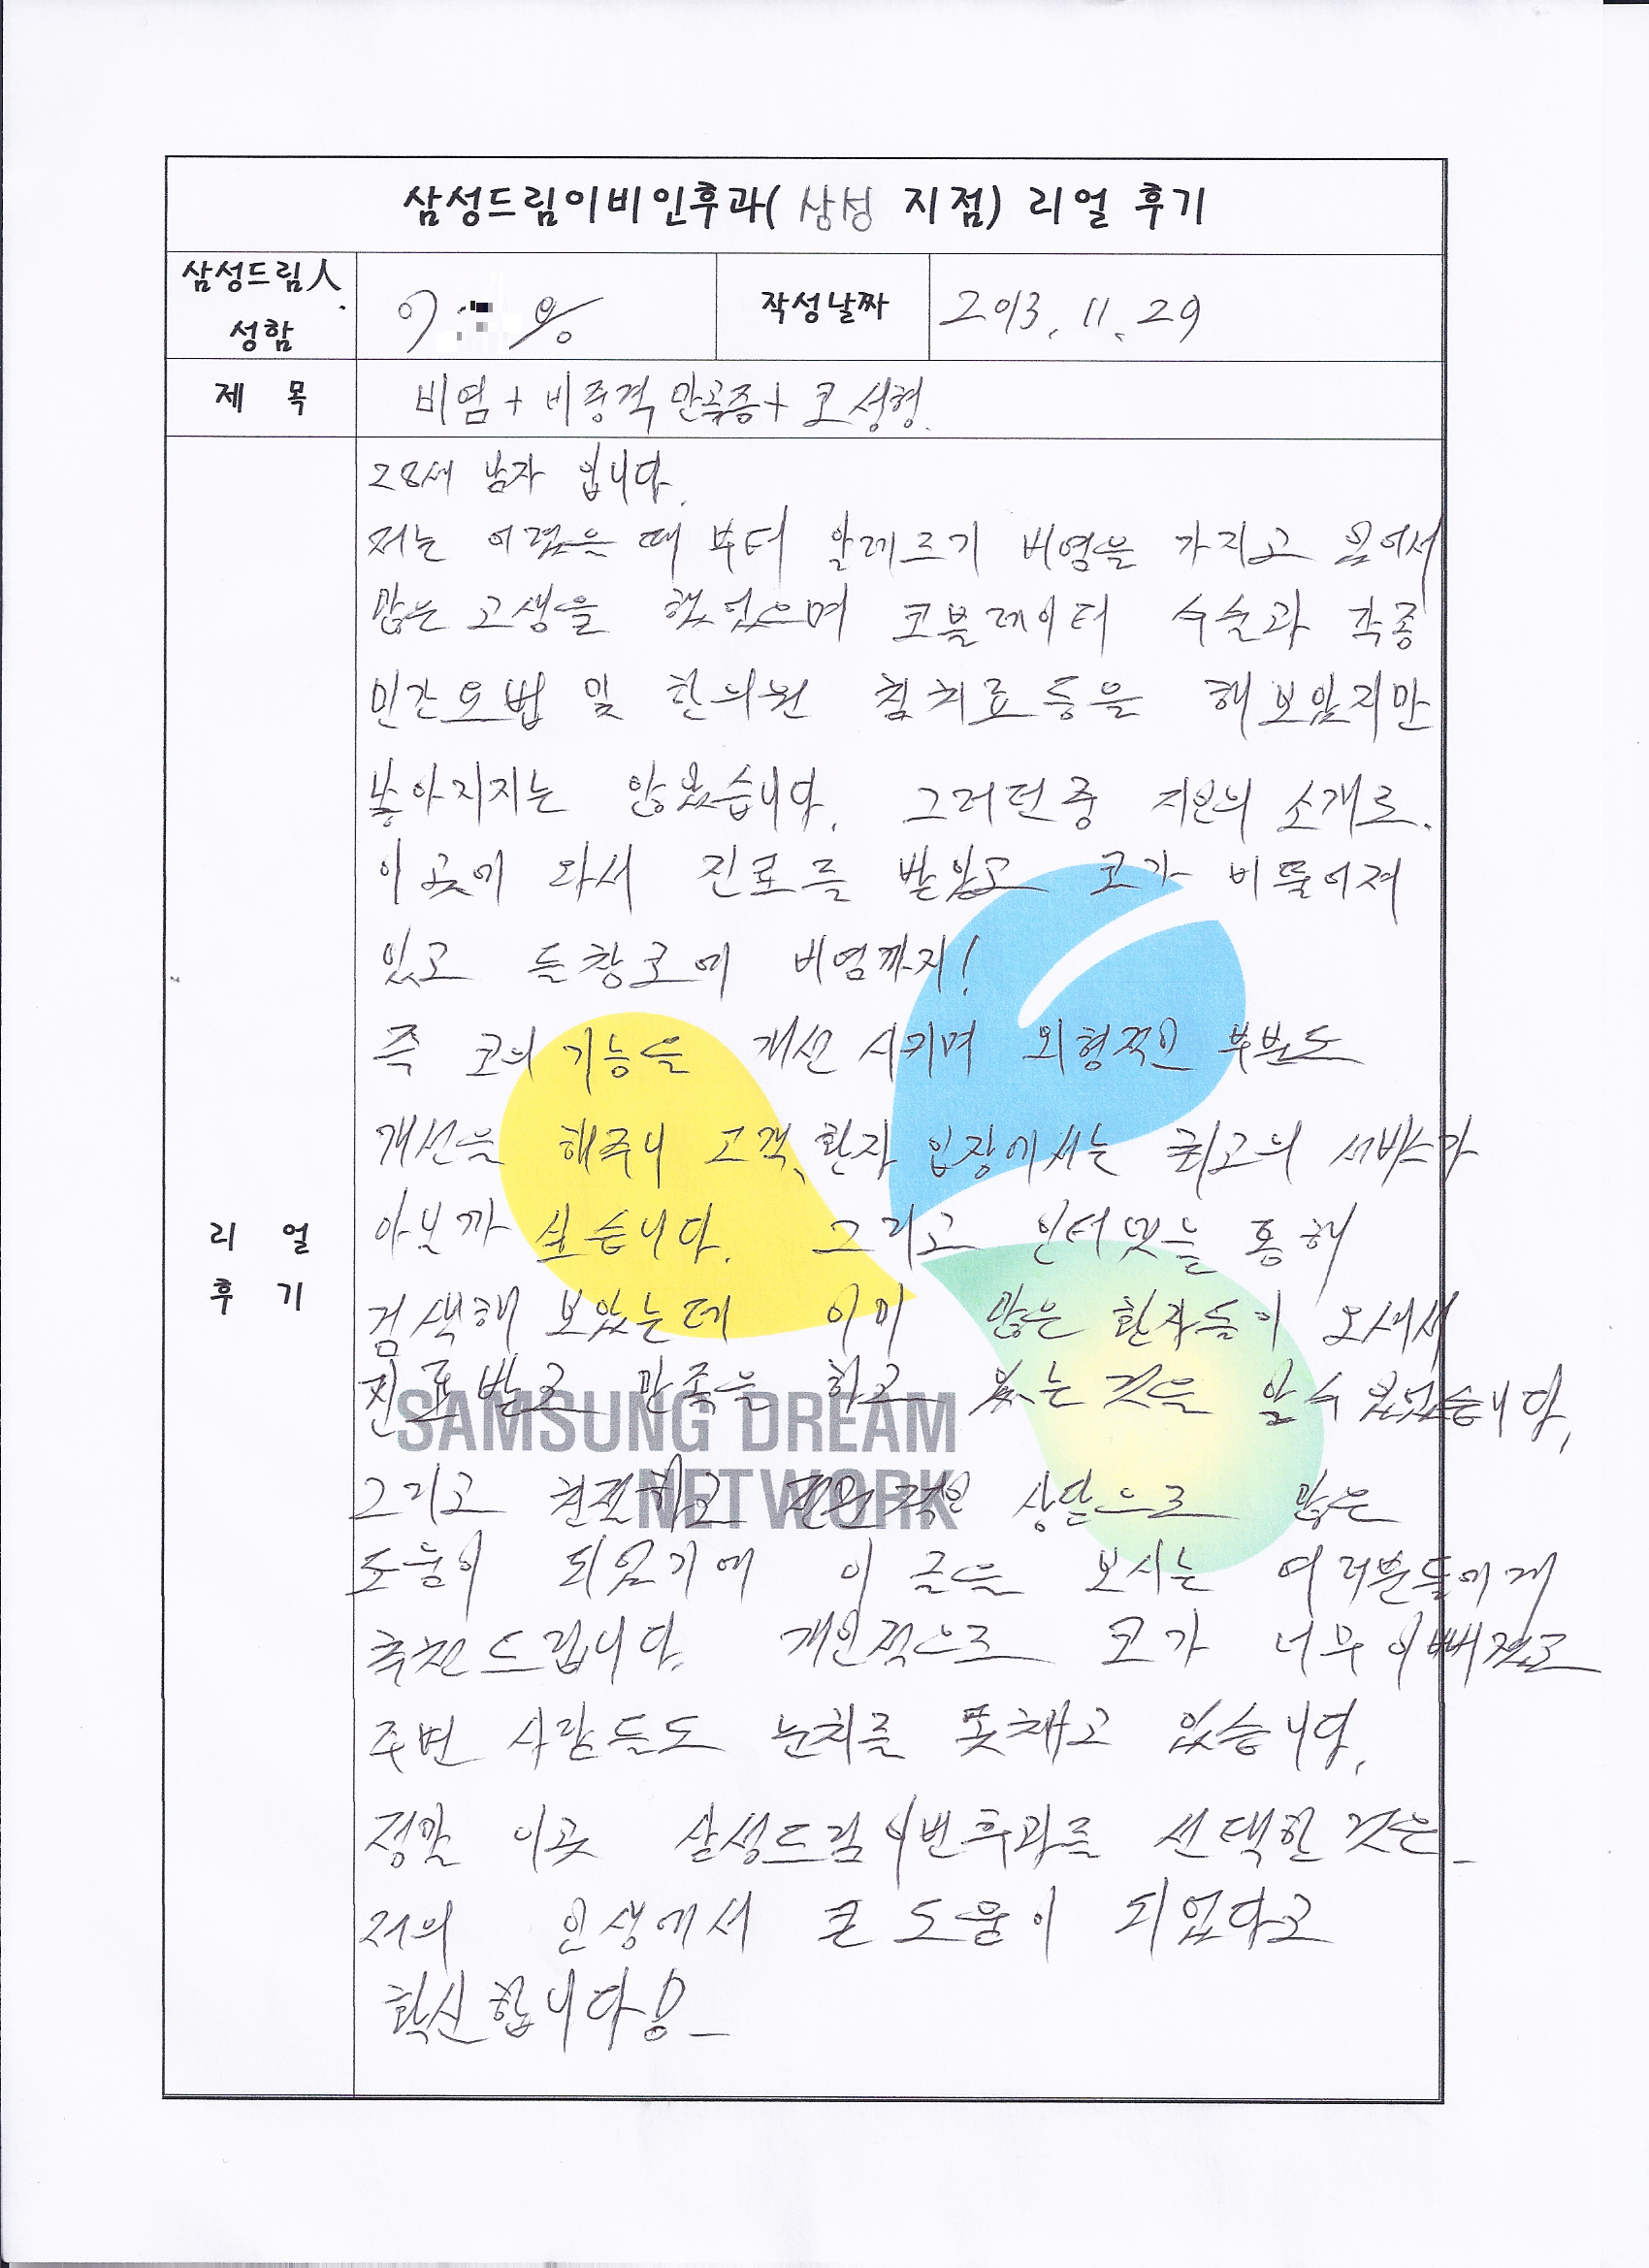 삼성드림이비인후과( 삼성 지점) 리얼 후기
삼성드림人
성함
이
작성날짜
2013. 11. 29
제 목
비염 + 비중격 만곡증 + 코 성형.
28세 남자 입니다.
저는 어렸을 때 부터 알레르기 비염을 가지고 있어서
많은 고생을 했었으며 코블레이터 수술과 각종
민간요법 및 한의원 침치료 등을 해보았지만
좋아지지는 않았습니다. 그러던중 지인의 소개로.
이곳에 와서 진료를 받았고 코가 비뚤어져
있고 들창코에 비염까지!
즉 코의 기능을 개선 시키며 외형적인 부분도
개선을 해주니 고객, 환자 입장에서는 최고의 서비스가
아닐까 싶습니다. 그리고 인터넷을 통해
검색해 보았는데 이미 많은 환자들이 오셔서
진료받고 만족을 하고 있는 것을 알 수 있었습니다.
SAMSUNG DREAM
NETWORK
그리고 친절하고 상담으로 많은
도움이 되었기에 이 글을 보시는 여러분들에게
추천드립니다. 개인적으로 코가 너무 이뻐졌고
주변 사람들도 눈치를 못채고 있습니다.
정말 이곳 삼성드림이빈후과를 선택한 것은
저의 인생에서 큰 도움이 되었다고
확신합니다!
리 얼
후 기